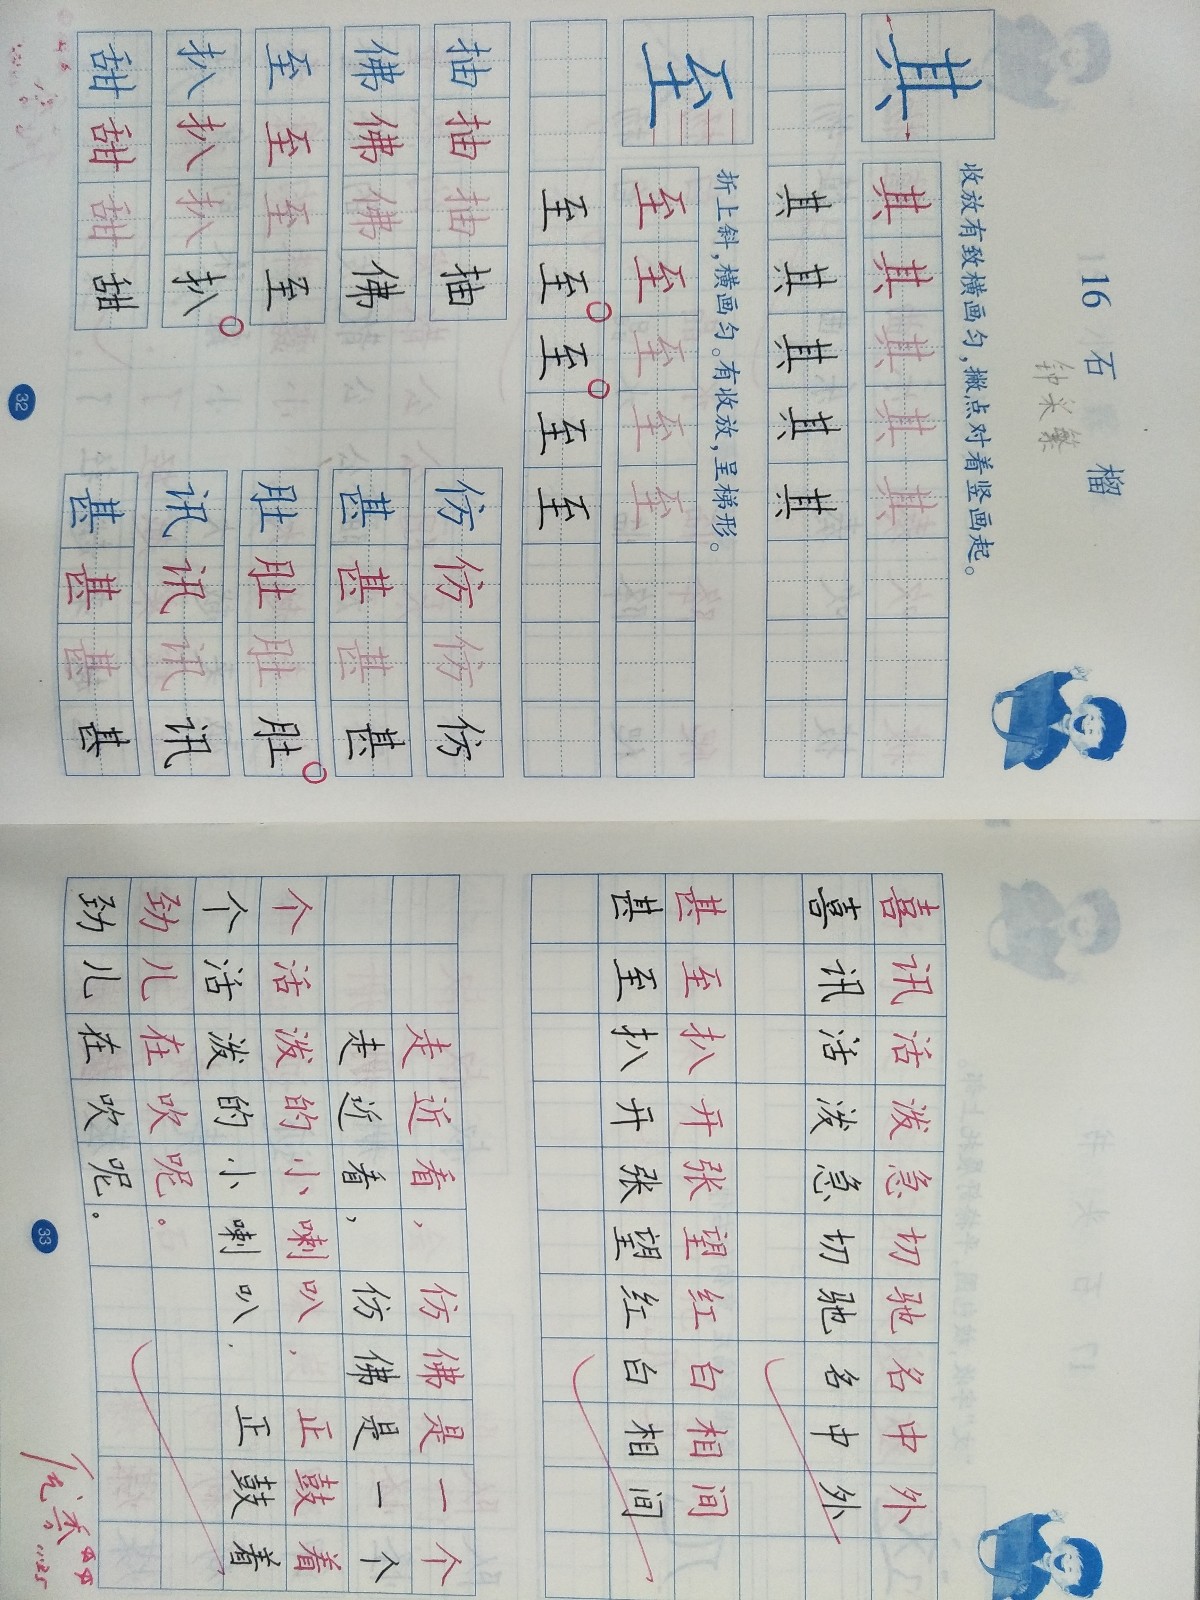 16 石榴
钟米繁
收放有致横画匀,撇点对着竖画起。
其 其 其 其 其 其
其 其 其 其 其
折上斜,横画匀。有收放,呈梯形。
至 至 至 至 至 至
至 至 至 至 至
抽 抽 抽 抽 仿 仿 仿 仿
佛 佛 佛 佛 甚 甚 甚 甚
至 至 至 至 肚 肚 肚 肚
扒 扒 扒 扒 讯 讯 讯 讯
甜 甜 甜 甜 甚 甚 甚 甚
32
喜讯活泼急切驰名中外
喜讯活泼急切驰名中外
甚至扒开张望红白相间
甚至扒开张望红白相间
走近看,仿佛是一个
走近看,仿佛是一个
个活泼的小喇叭,正鼓着
个活泼的小喇叭,正鼓着
劲儿在吹呢。
劲儿在吹呢。
33